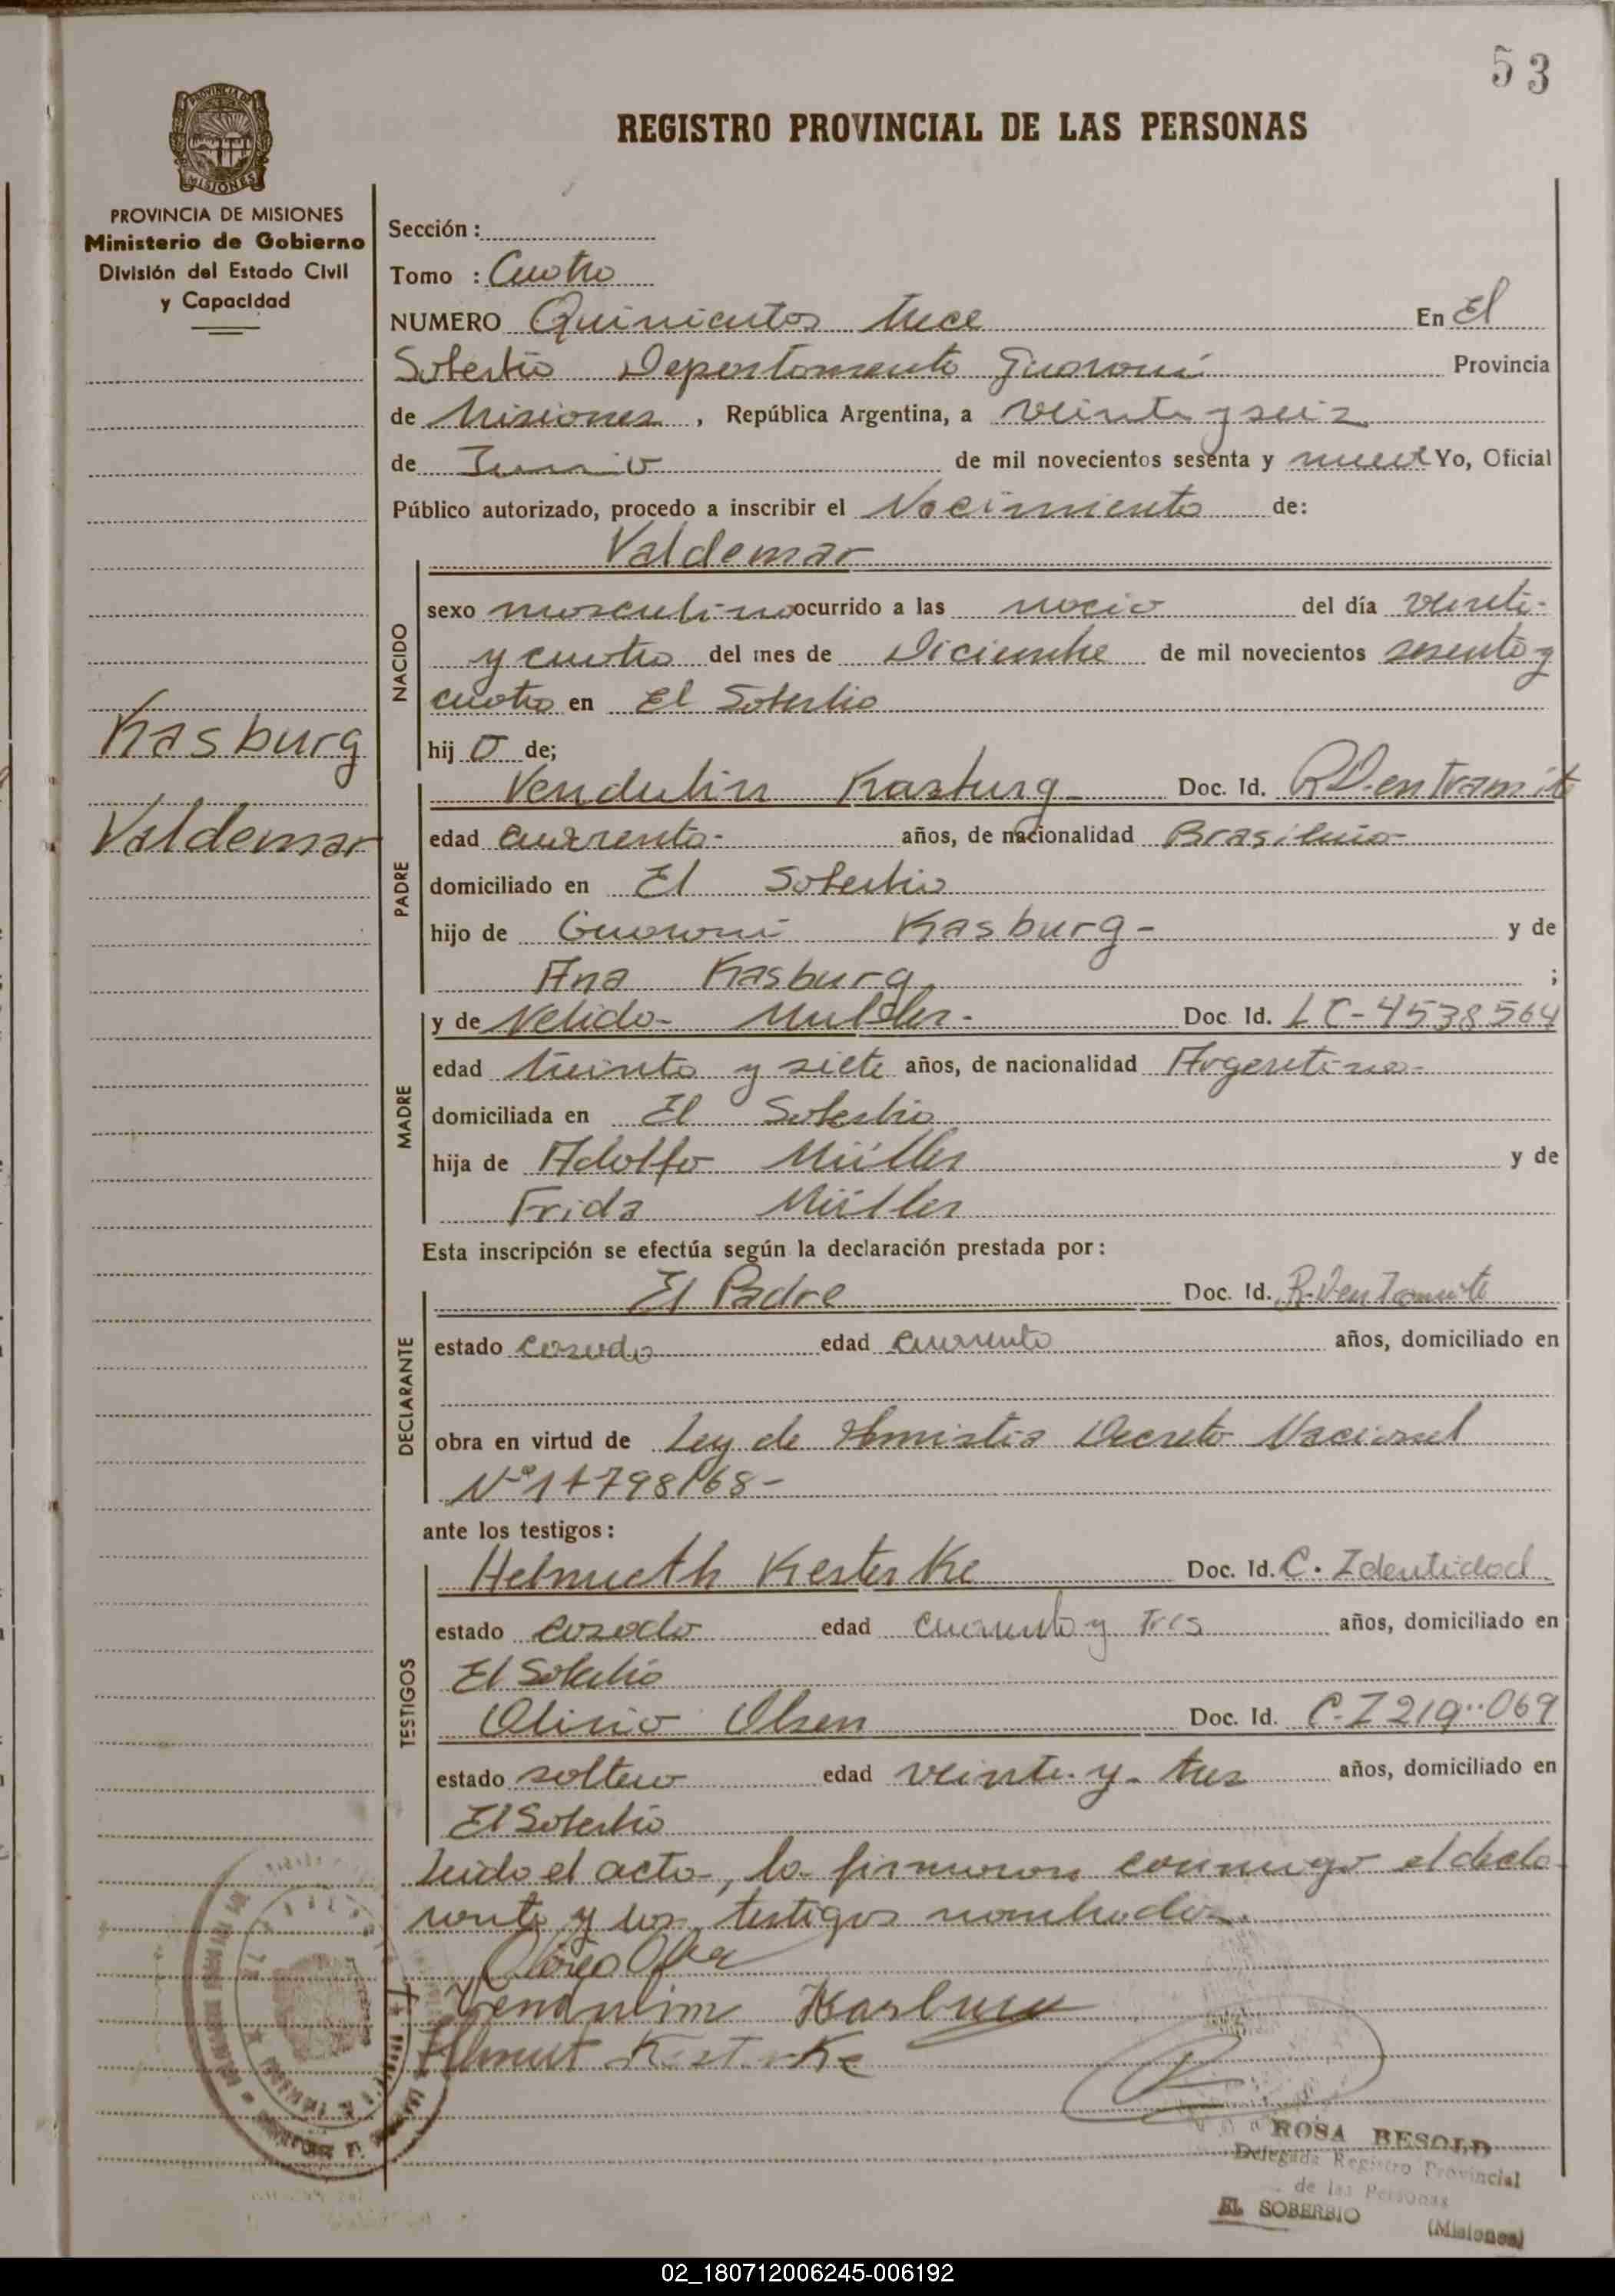 53
PROVINCIA DE
MISIONES
REGISTRO PROVINCIAL DE LAS PERSONAS
PROVINCIA DE MISIONES
Ministerio de Gobierno
División del Estado Civil
y Capacidad
Kasburg
Valdemar
Sección :
Tomo : Cuatro
NUMERO Quinientos trece En El
Soberbio Departamento Guaraní Provincia
de Misiones , República Argentina, a veinte y seis
de Junio de mil novecientos sesenta y nueve Yo, Oficial
Público autorizado, procedo a inscribir el Nacimiento de:
Valdemar
NACIDO
sexo masculino ocurrido a las del día veinti-
y cuatro del mes de Diciembre de mil novecientos sesenta y
cuatro en El Soberbio
hij o de;
PADRE
Vendulin Kasburg - Doc. Id. R.D. en Tramite
edad cuarenta - años, de nacionalidad Brasileña -
domiciliado en El Soberbio
hijo de Kasburg - y de
Ana Kasburg ;
MADRE
y de Nelida - Muller - Doc. Id. LC - 4538564
edad treinta y siete años, de nacionalidad Argentina -
domiciliada en El Soberbio
hija de Adolfo Müller y de
Frida Müller
Esta inscripción se efectúa según la declaración prestada por :
DECLARANTE
El Padre Doc. Id. R.D en Tramite
estado casado edad cuarenta años, domiciliado en
obra en virtud de Ley de Amnistia Decreto Nacional
Nº 17798/68 -
ante los testigos :
TESTIGOS
Helmuth Kesterke Doc. Id. C. Identidad
estado casado edad cuarenta y Tres años, domiciliado en
El Soberbio
Olirio Olsen Doc. Id. C.I 219..069
estado soltero edad veinte y - tres años, domiciliado en
El Soberbio
Leido el acta, la firmaron conmigo el decla-
rante y los testigos nombrados.
Vendulim Kasburg
Helmut Kesterke
ROSA BESOLD
Delegada Registro Provincial
de las Personas
EL SOBERBIO (Misiones)
02_180712006245-006192